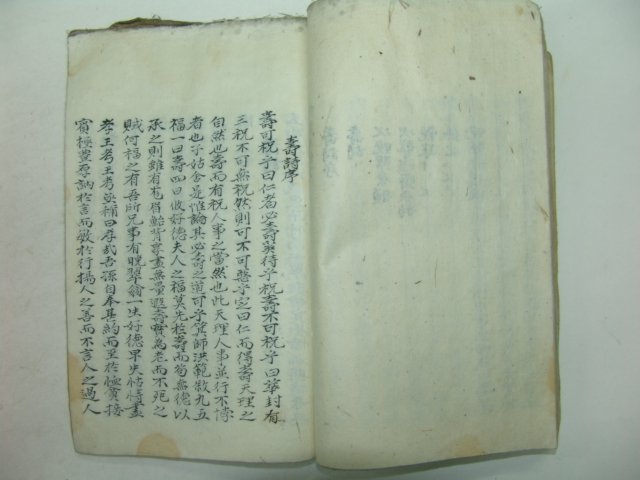 壽詩序
壽可祝乎曰仁者必壽奚待乎祝壽不可祝乎曰華封有
三祝不可無祝然則可不可啓乎定曰仁而得壽天理之
自然也壽而有祝人事之當然也此天理人事並行不悖
者也子姑舍是誰論其必壽之道可乎箕師洪範敘九五
福一曰壽四曰攸好德夫人之福莫先於壽而苟無德以
承之則雖有厖眉鮐背享盡無量遐壽實為老而不死之
賊何福之有吾所兄事有晩翠翁一生好德早失怙情盡
孝王考王考並稱曰孝哉吾孫自奉甚約而至於恤貧接
賓極豊厚訥於言而敏於行揚人之善而不言人之過人